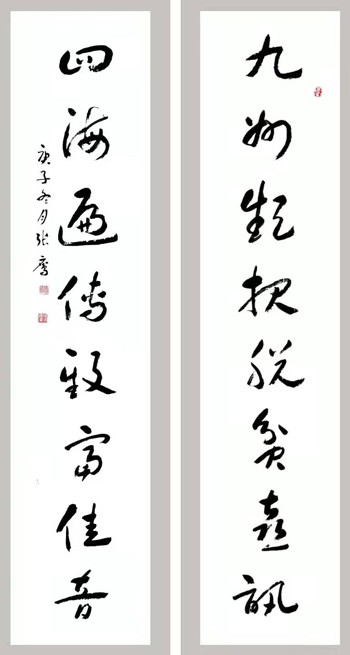 九州频报脱貧喜訊
四海遍傳致富佳音
庚子冬月张